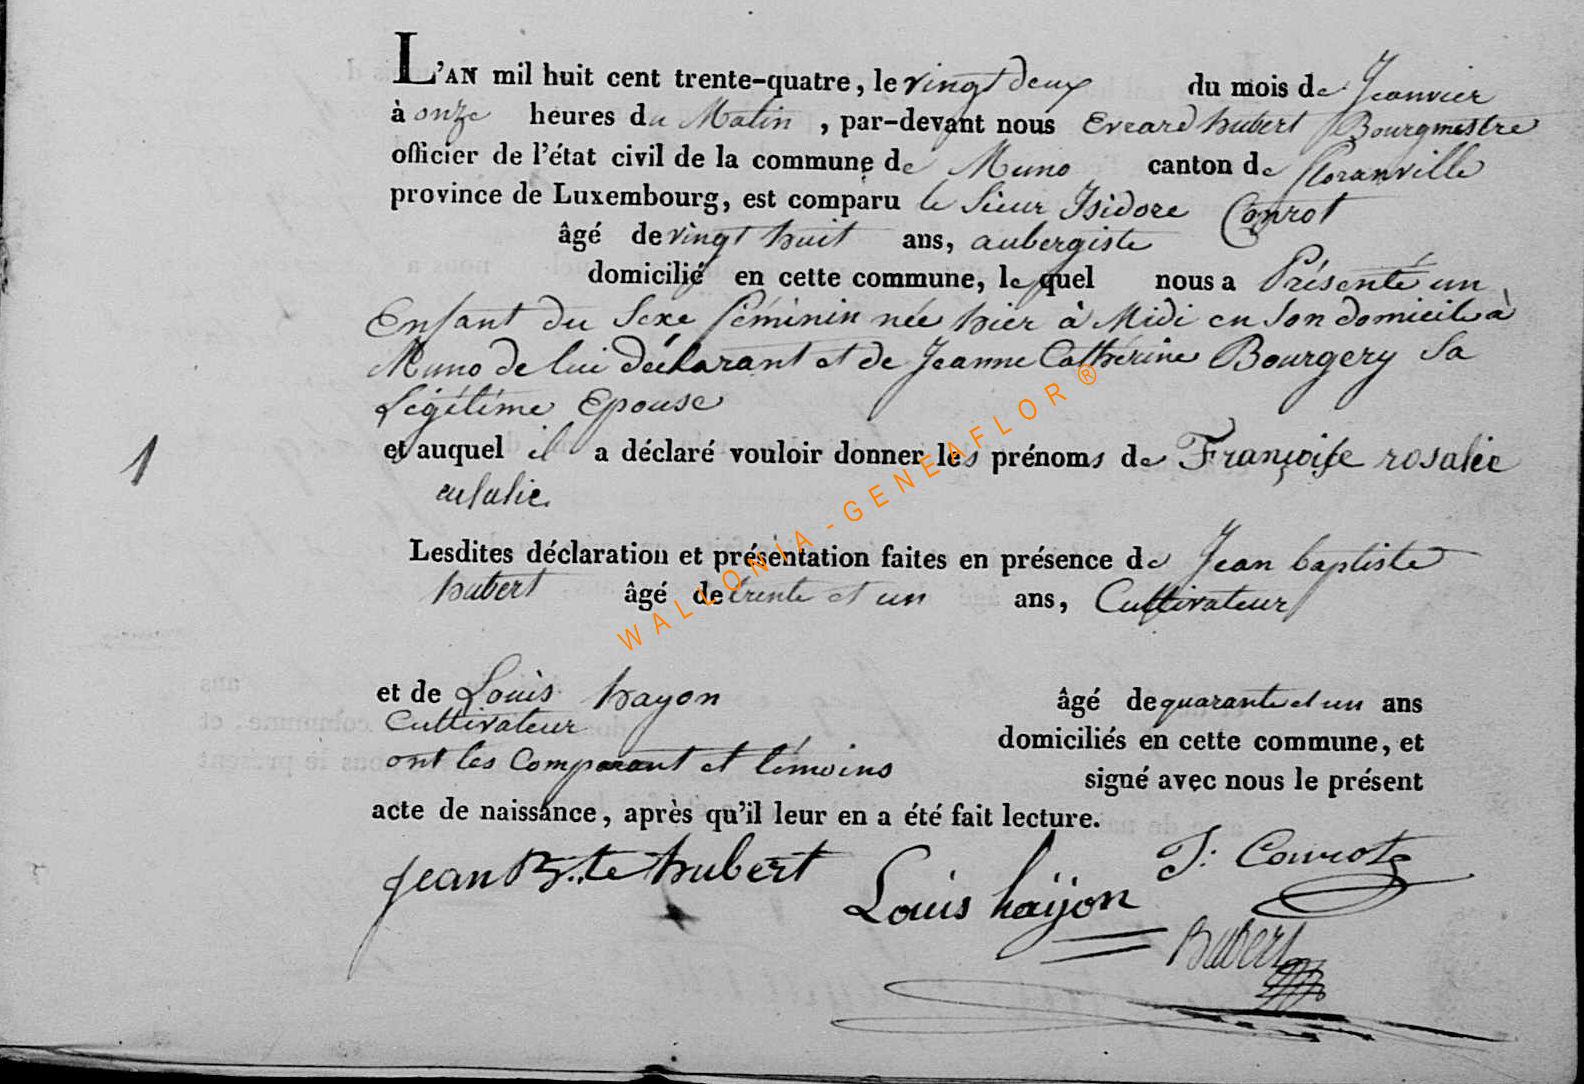 L'AN mil huit cent trente-quatre, le vingt deux du mois de Jeanvier
à onze heures du Matin , par-devant nous Evrard hubert Bourgmestre
officier de l'état civil de la commune de Muno canton de floranville
province de Luxembourg, est comparu le Sieur Isidore Conrot
âgé de vingt huit ans, aubergiste
domicilié en cette commune, le quel nous a Présenté un
Enfant du Sexe féminin née hier à Midi en Son domicile à
Muno de lui déclarant et de Jeanne Cathérine Bourgery Sa
Légitime Epouse
et auquel il a déclaré vouloir donner les prénoms de Françoise rosalie
1
eulalie.
Lesdites déclaration et présentation faites en présence de Jean baptiste
hubert âgé de trente et un ans, Cultivateur
et de Louis hayon âgé de quarante et un ans
Cultivateur domiciliés en cette commune, et
ont les Comparant et témoins signé avec nous le présent
acte de naissance, après qu'il leur en a été fait lecture.
Jean B.te hubert Louis haÿon J: Conrot
hubert
WALLONIA-GENEAFLOR®